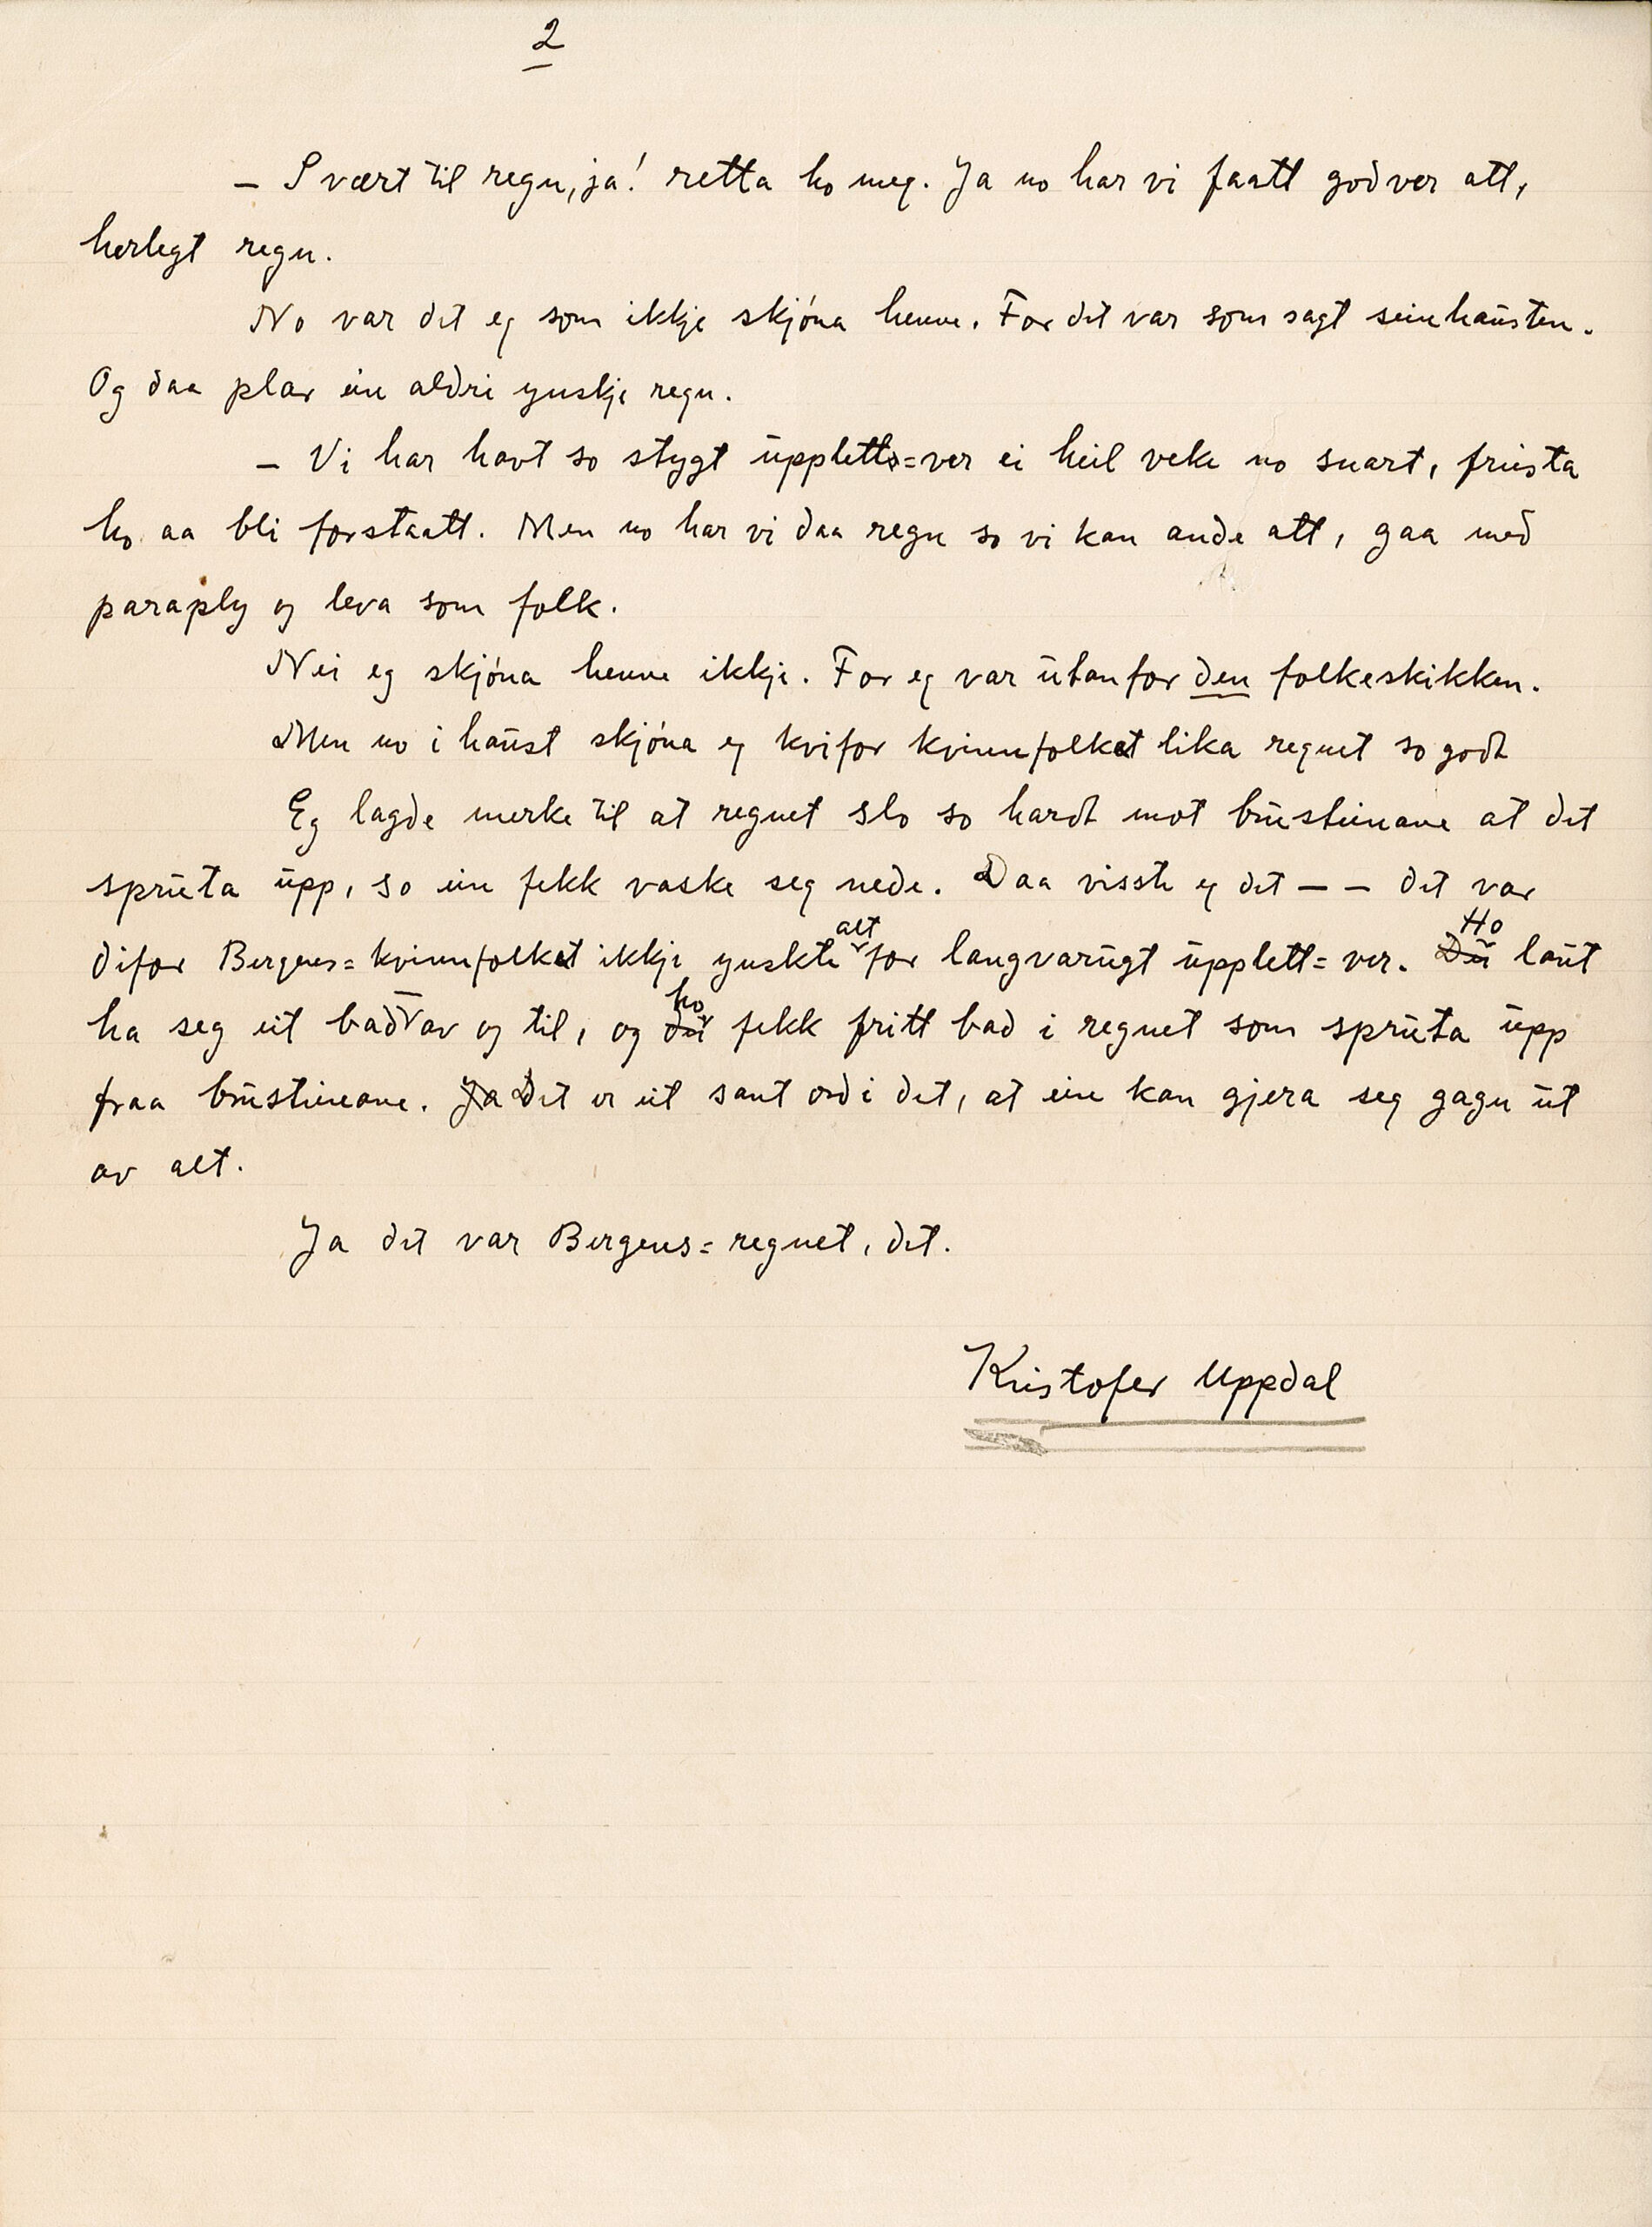 2
— Svært til regn, ja! retta ho meg. Ja no har vi faatt godver att,
herlegt regn.
No var det eg som ikkje skjóna henne. For det var som sagt seinhausten.
Og daa plar ein aldri ynskje regn.
— Vi har havt so stygt uppletts=ver ei heil veke no snart, freista
ho aa bli forstaatt. Men no har vi daa regn so vi kan ande att, gaa med
paraply og leva som folk.
Nei eg skjóna henne ikkje. For eg var utanfor den folkeskikken.
Men no i haust skjóna eg kvifor kvinnfolket lika regnet so godt
Eg lagde merke til at regnet slo so hardt mot brusteinane at det
spruta upp, so ein fekk vaske seg nede. Daa visste eg det — — det var
alt Ho
difor Bergens=kvinnfolket ikkje ynskte for langvarugt upplett=ver. Du laut
ho
ha seg eit bad av og til, og du fekk fritt bad i regnet som spruta upp
fraa brusteineane. Ja Det er eit sant ord i det, at ein kan gjera seg gagn ut
av alt.
Ja det var Bergens=regnet, det.
Kristofer Uppdal